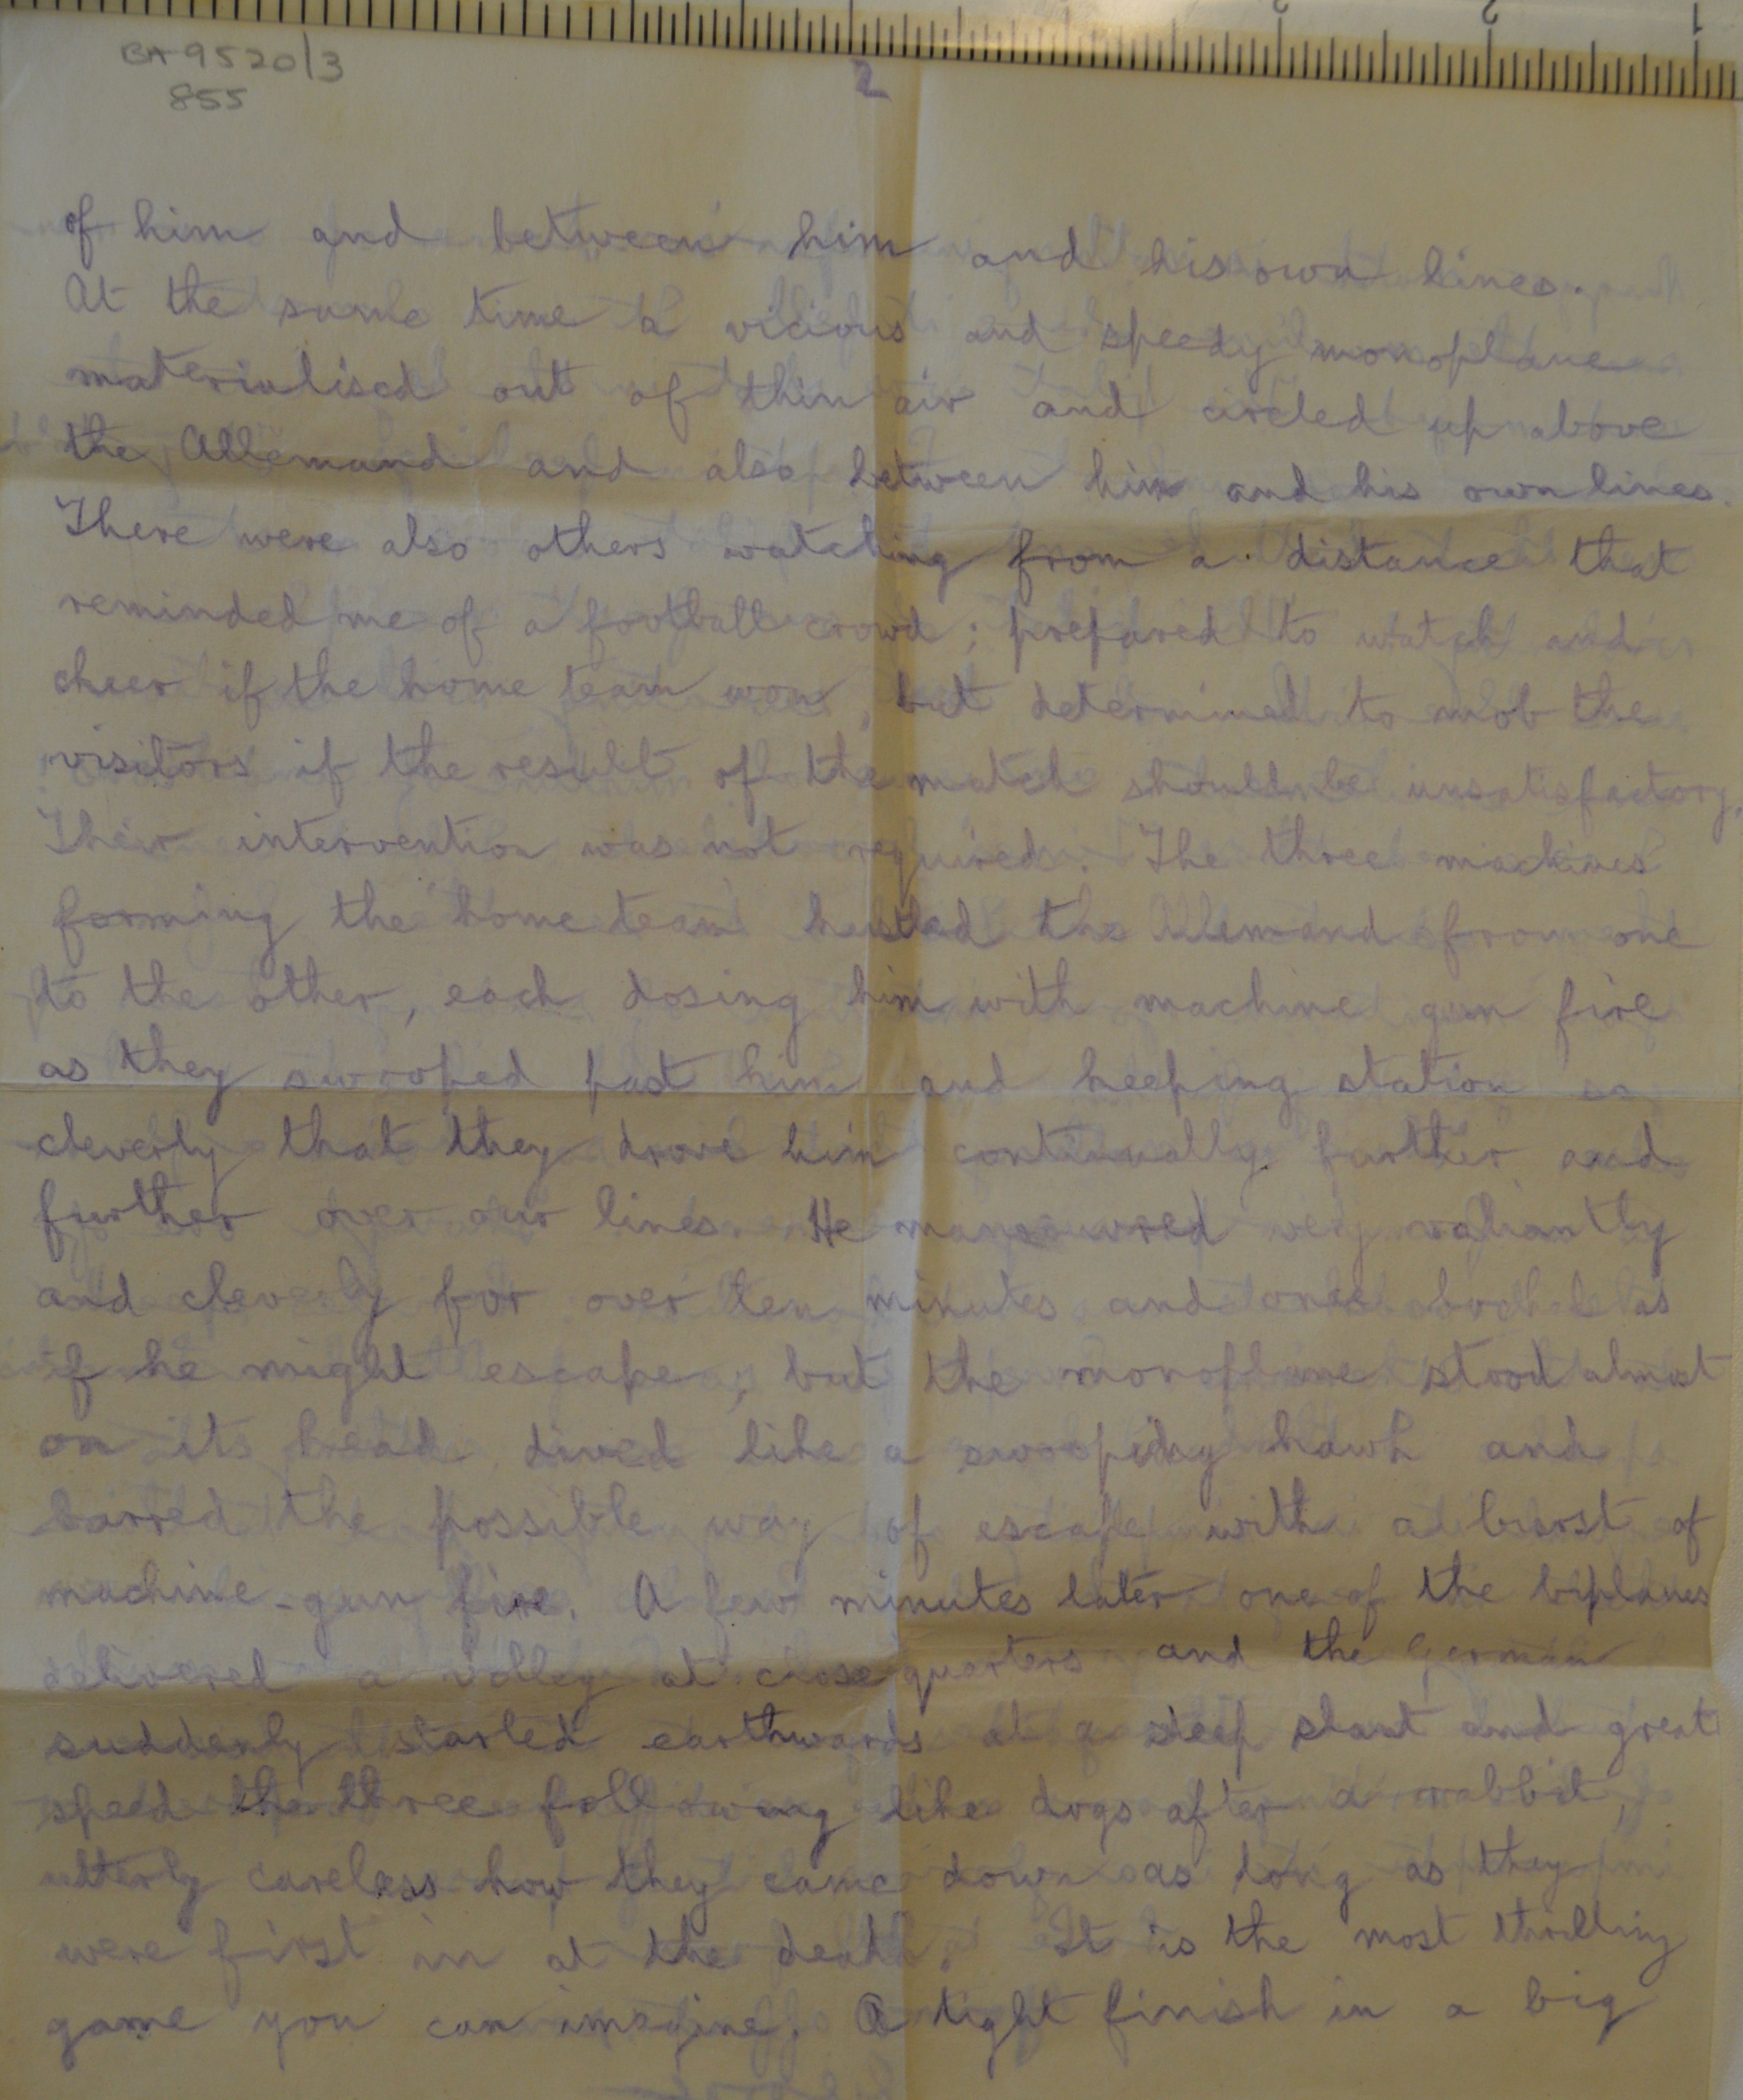 BA 9520/3
855
2
of him and between him and his own lines.
At the same time a vicious and speedy monoplane
materialised out of thin air and circled up above
the Allemand and also between him and his own lines.
There were also others watching from a distance that
reminded me of a football crowd; prepared to watch and
cheer if the home team won, but determined to mob the
visitors if the result of the match should be unsatisfactory.
Their intervention was not required. The three machines
forming the home team hustled the Allemand from one
to the other, each dosing him with machine gun fire
as they swooped past him and keeping station so
cleverly that they drove him continually further and
further over our lines. He manoeuvred very valiantly
and cleverly for over ten minutes and once looked as
if he might escape, but the monoplane stood almost
on its head, dived like a swooping hawk and
barred the possible way of escape with a burst of
machine-gun fire. A few minutes later one of the biplanes
delivered a volley at close quarters and the German
suddenly started earthwards at a steep slant and great
speed the three following like dogs after a rabbit,
utterly careless how they came down as long as they
were first in at the death. It is the most thrilling
game you can imagine. A tight finish in a big